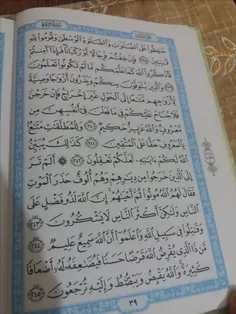 حَٰفِظُوا۟ عَلَى ٱلصَّلَوَٰتِ وَٱلصَّلَوٰةِ ٱلْوُسْطَىٰ وَقُومُوا۟ لِلَّهِ
قَٰنِتِينَ ٢٣٨ فَإِنْ خِفْتُمْ فَرِجَالًا أَوْ رُكْبَانًا فَإِذَآ أَمِنتُمْ
فَٱذْكُرُوا۟ ٱللَّهَ كَمَا عَلَّمَكُم مَّا لَمْ تَكُونُوا۟ تَعْلَمُونَ
٢٣٩ وَٱلَّذِينَ يُتَوَفَّوْنَ مِنكُمْ وَيَذَرُونَ أَزْوَٰجًا وَصِيَّةً
لِّأَزْوَٰجِهِم مَّتَٰعًا إِلَى ٱلْحَوْلِ غَيْرَ إِخْرَاجٍ فَإِنْ خَرَجْنَ
فَلَا جُنَاحَ عَلَيْكُمْ فِى مَا فَعَلْنَ فِىٓ أَنفُسِهِنَّ مِن
مَّعْرُوفٍ وَٱللَّهُ عَزِيزٌ حَكِيمٌ ٢٤٠ وَلِلْمُطَلَّقَٰتِ مَتَٰعٌۢ
بِٱلْمَعْرُوفِ حَقًّا عَلَى ٱلْمُتَّقِينَ ٢٤١ كَذَٰلِكَ يُبَيِّنُ
ٱللَّهُ لَكُمْ ءَايَٰتِهِۦ لَعَلَّكُمْ تَعْقِلُونَ ٢٤٢ أَلَمْ تَرَ
إِلَى ٱلَّذِينَ خَرَجُوا۟ مِن دِيَٰرِهِمْ وَهُمْ أُلُوفٌ حَذَرَ ٱلْمَوْتِ
فَقَالَ لَهُمُ ٱللَّهُ مُوتُوا۟ ثُمَّ أَحْيَٰهُمْ إِنَّ ٱللَّهَ لَذُو فَضْلٍ عَلَى
ٱلنَّاسِ وَلَٰكِنَّ أَكْثَرَ ٱلنَّاسِ لَا يَشْكُرُونَ ٢٤٣
وَقَٰتِلُوا۟ فِى سَبِيلِ ٱللَّهِ وَٱعْلَمُوٓا۟ أَنَّ ٱللَّهَ سَمِيعٌ عَلِيمٌ ٢٤٤
مَّن ذَا ٱلَّذِى يُقْرِضُ ٱللَّهَ قَرْضًا حَسَنًا فَيُضَٰعِفَهُۥ لَهُۥٓ أَضْعَافًا
كَثِيرَةً وَٱللَّهُ يَقْبِضُ وَيَبْصُۜطُ وَإِلَيْهِ تُرْجَعُونَ ٢٤٥
٣٩